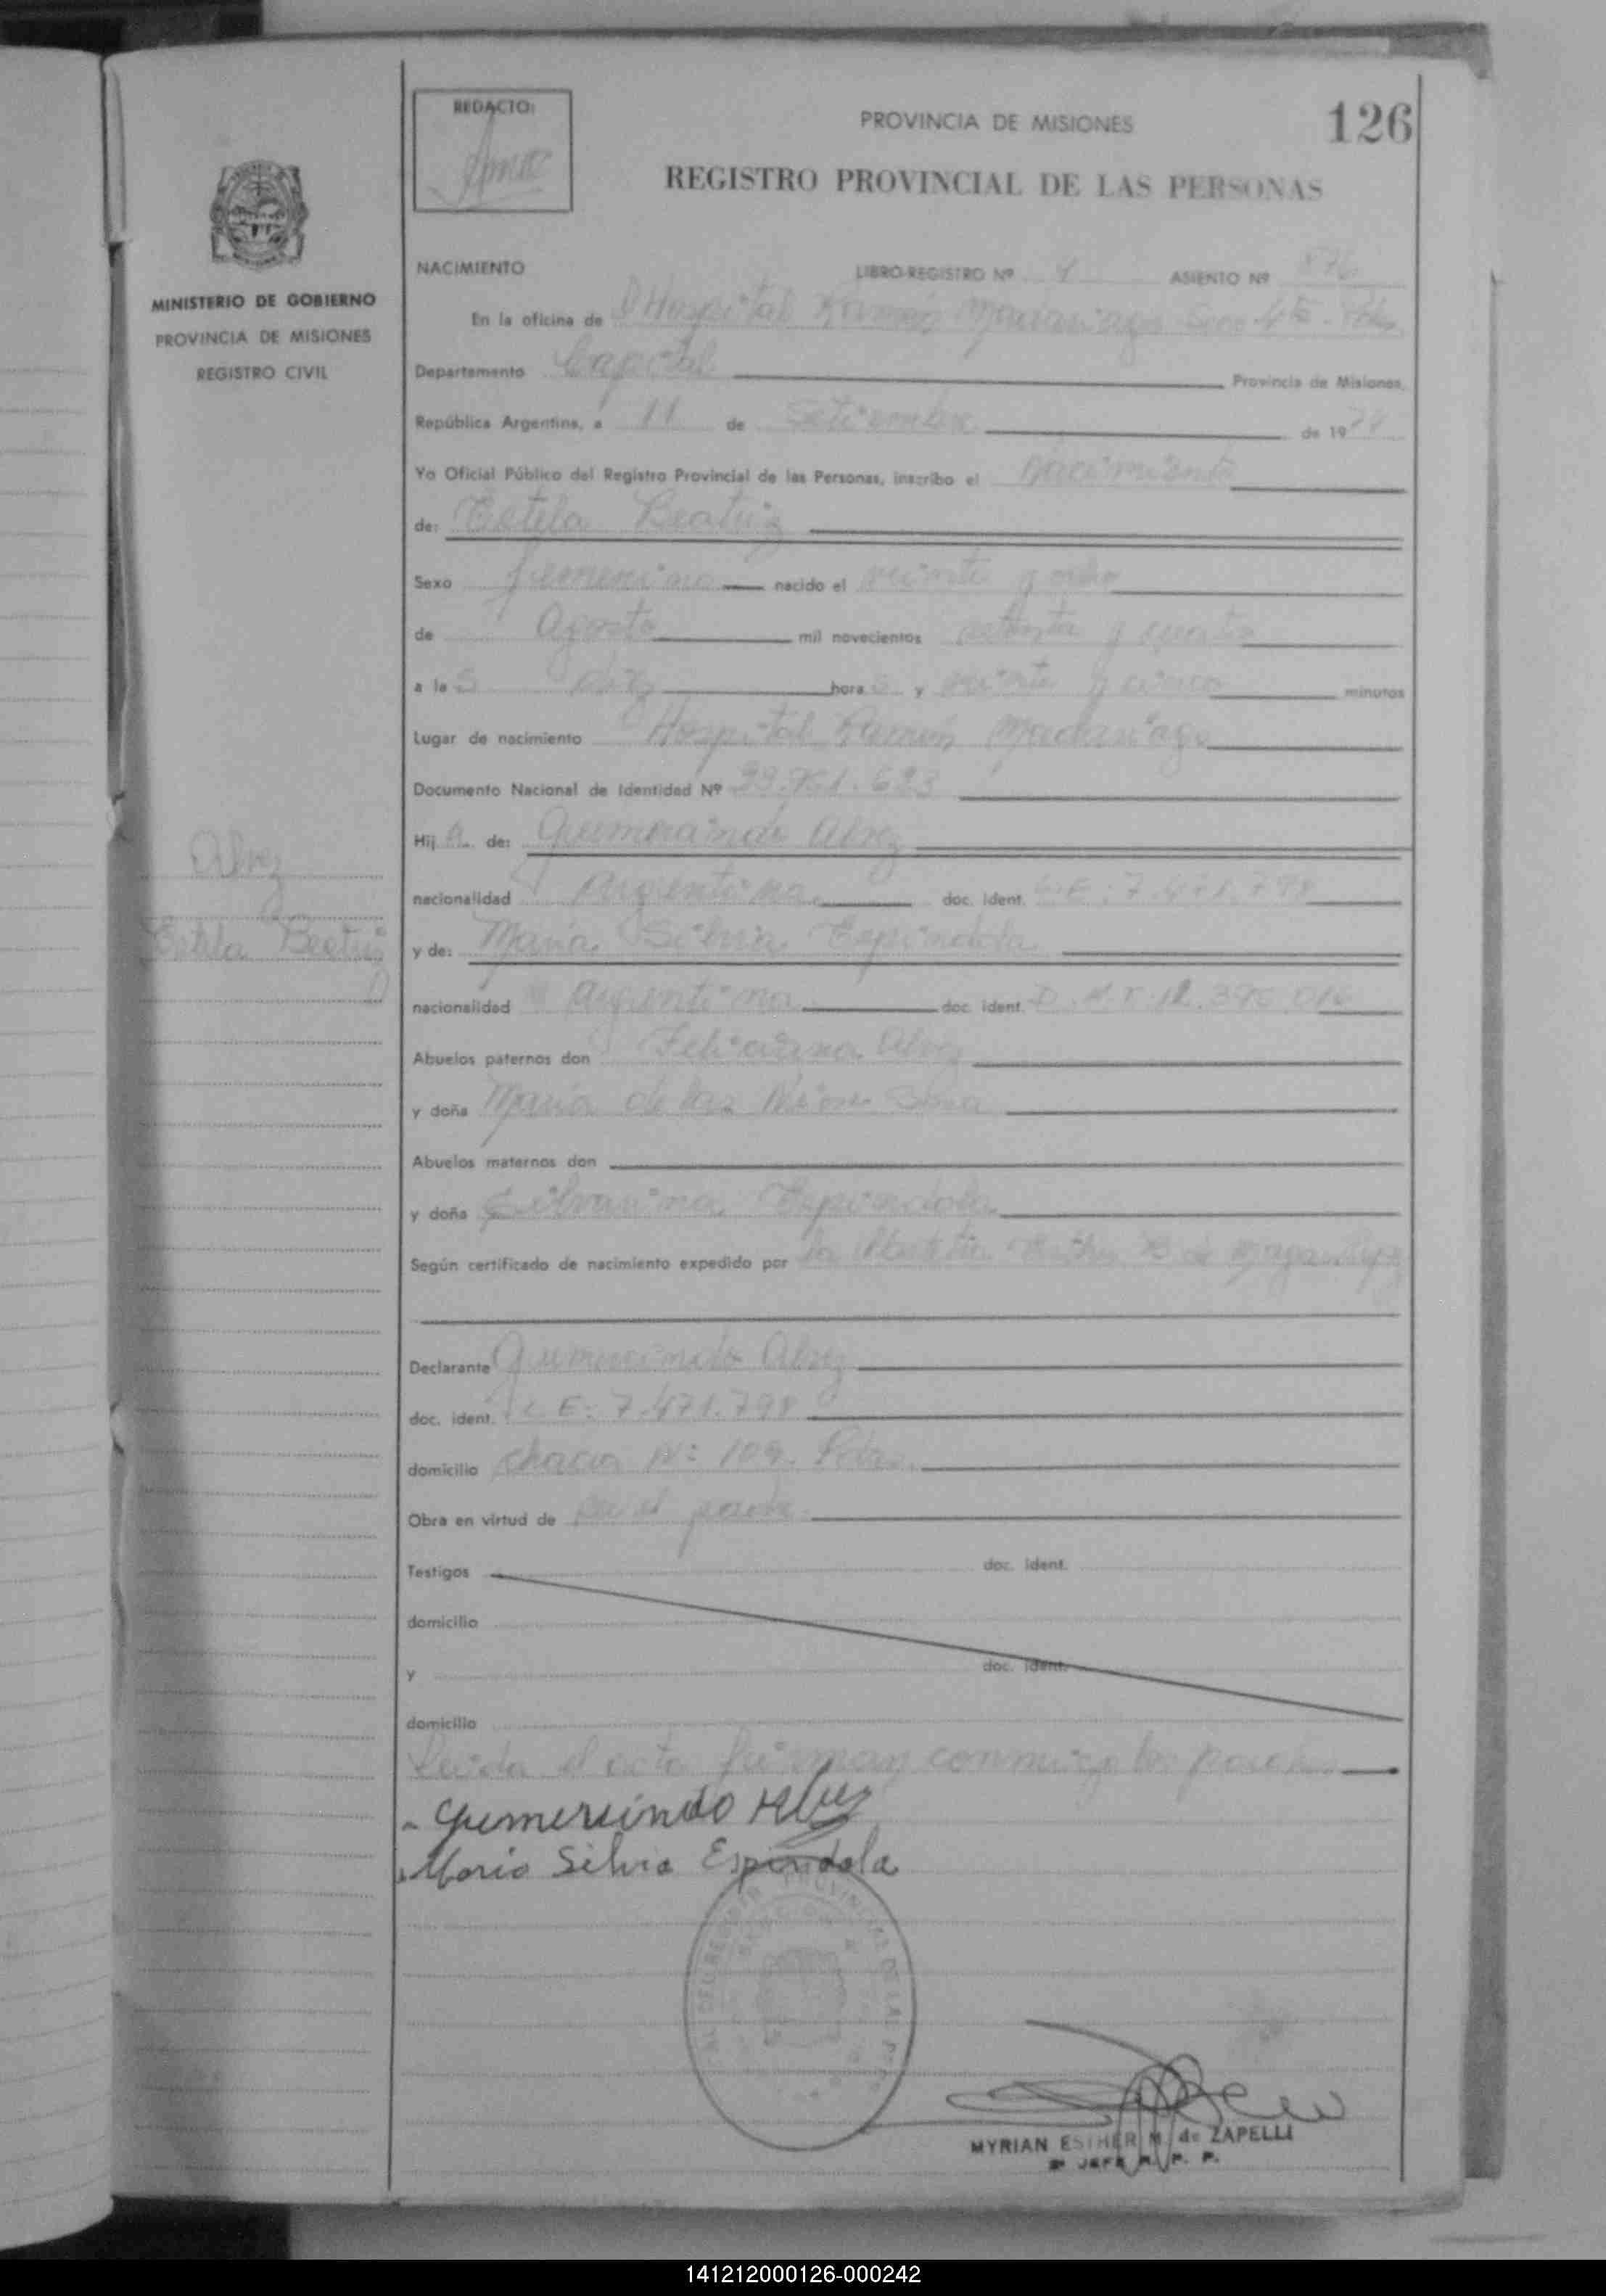 REDACTO:
PROVINCIA DE MISIONES
126
REGISTRO PROVINCIAL DE LAS PERSONAS
MINISTERIO DE GOBIERNO
PROVINCIA DE MISIONES
REGISTRO CIVIL
NACIMIENTO LIBRO-REGISTRO Nº ASIENTO Nº
En la oficina de Hospital Ramón Madariaga Secc 4ta
Departamento Capital Provincia de Misiones,
República Argentina, a 11 de Setiembre de 1974
Yo Oficial Público del Registro Provincial de las Personas, inscribo el nacimiento
de: Estela Beatriz
Sexo femenino nacido el veinte y ocho
de Agosto mil novecientos setenta y cuatro
a las diez horas y veinte y cinco minutos
Lugar de nacimiento Hospital Ramón Madariaga
Documento Nacional de Identidad Nº
Hija de: Gumersindo Alvez
nacionalidad Argentina doc. ident. L.E. 7.471.798
Alvez
Estela Beatriz
y de: Maria Silvia Espindola
nacionalidad argentina doc ident.
Abuelos paternos don Alvez
y doña Maria de las
Abuelos maternos don
y doña Silvanina Espindola
Según certificado de nacimiento expedido por la
Declarante Gumersindo Alvez
doc. ident. L.E. 7.471.798
domicilio chacra Nº 109.
Obra en virtud de ser el padre
Testigos doc. ident.
domicilio
y doc. ident.
domicilio
Leida el acta firman conmigo los padres
Gumersindo Alvez
Maria Silvia Espindola
MYRIAN ESTHER M. de ZAPELLI
JEFE R. P. P.
141212000126-000242